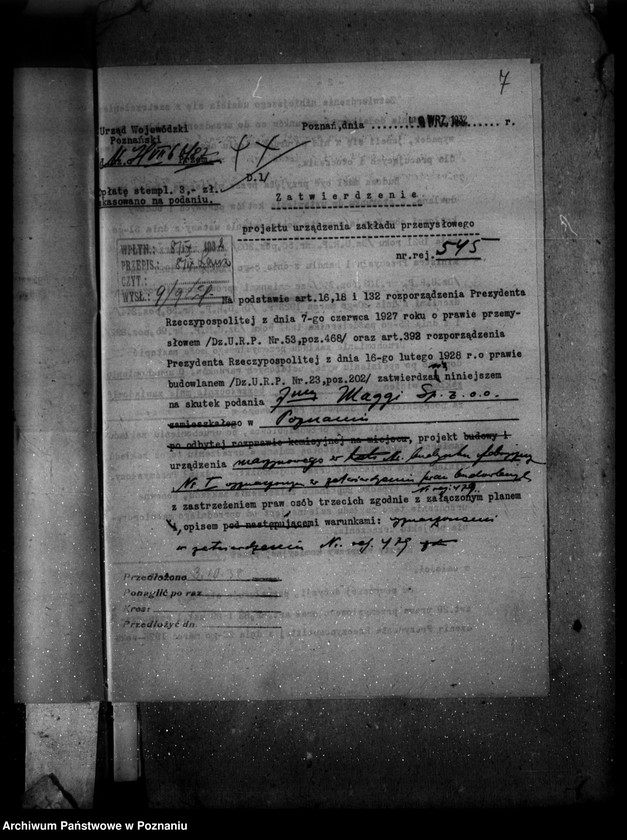 7
Urząd Wojewódzki
Poznański
Poznań, dnia ..... WRZ. 1932 ..... r.
D.1/
Opłatę stempl. 3,- zł.
skasowano na podaniu.
Zatwierdzenie
projektu urządzenia zakładu przemysłowego
nr.rej. 545
WPŁYN.:
PRZEPIS.:
CZYT.:
WYSŁ.: 9/9
Na podstawie art.16,18 i 132 rozporządzenia Prezydenta
Rzeczypospolitej z dnia 7-go czerwca 1927 roku o prawie przemy-
słowem /Dz.U.R.P. Nr.53,poz.468/ oraz art.392 rozporządzenia
Prezydenta Rzeczypospolitej z dnia 16-go lutego 1928 r.o prawie
budowlanem /Dz.U.R.P. Nr.23,poz.202/ zatwierdza niniejszem
na skutek podania Firmy Maggi Sp. z o.o.
zamieszkałego w Poznaniu
po odbytej rozprawie komisyjnej na miejscu, projekt budowy i
urządzenia w budynku fabrycznym
Nr I w zatwierdzeniu
z zastrzeżeniem praw osób trzecich zgodnie z załączonym planem
, opisem pod następującemi warunkami:
w zatwierdzeniu Nr. rej. 479
Przedłożono
Ponaglić po raz
Kres:
Przedłożyć dn
Archiwum Państwowe w Poznaniu